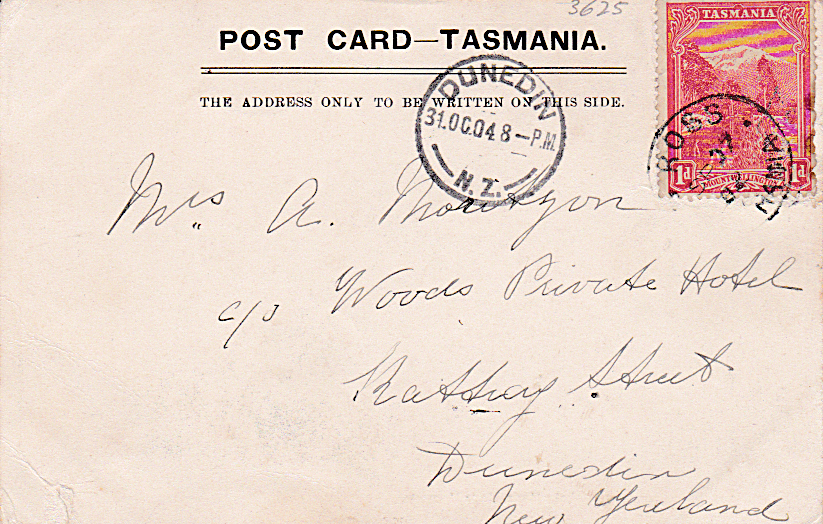 3625
POST CARD—TASMANIA.
THE ADDRESS ONLY TO BE WRITTEN ON THIS SIDE.
TASMANIA
1d MOUNT WELLINGTON 1d
DUNEDIN
31.OC.04 8-P.M.
N.Z.
ROSS
Mrs A.
c/o Woods Private Hotel
Rattray Street
Dunedin
New Zealand